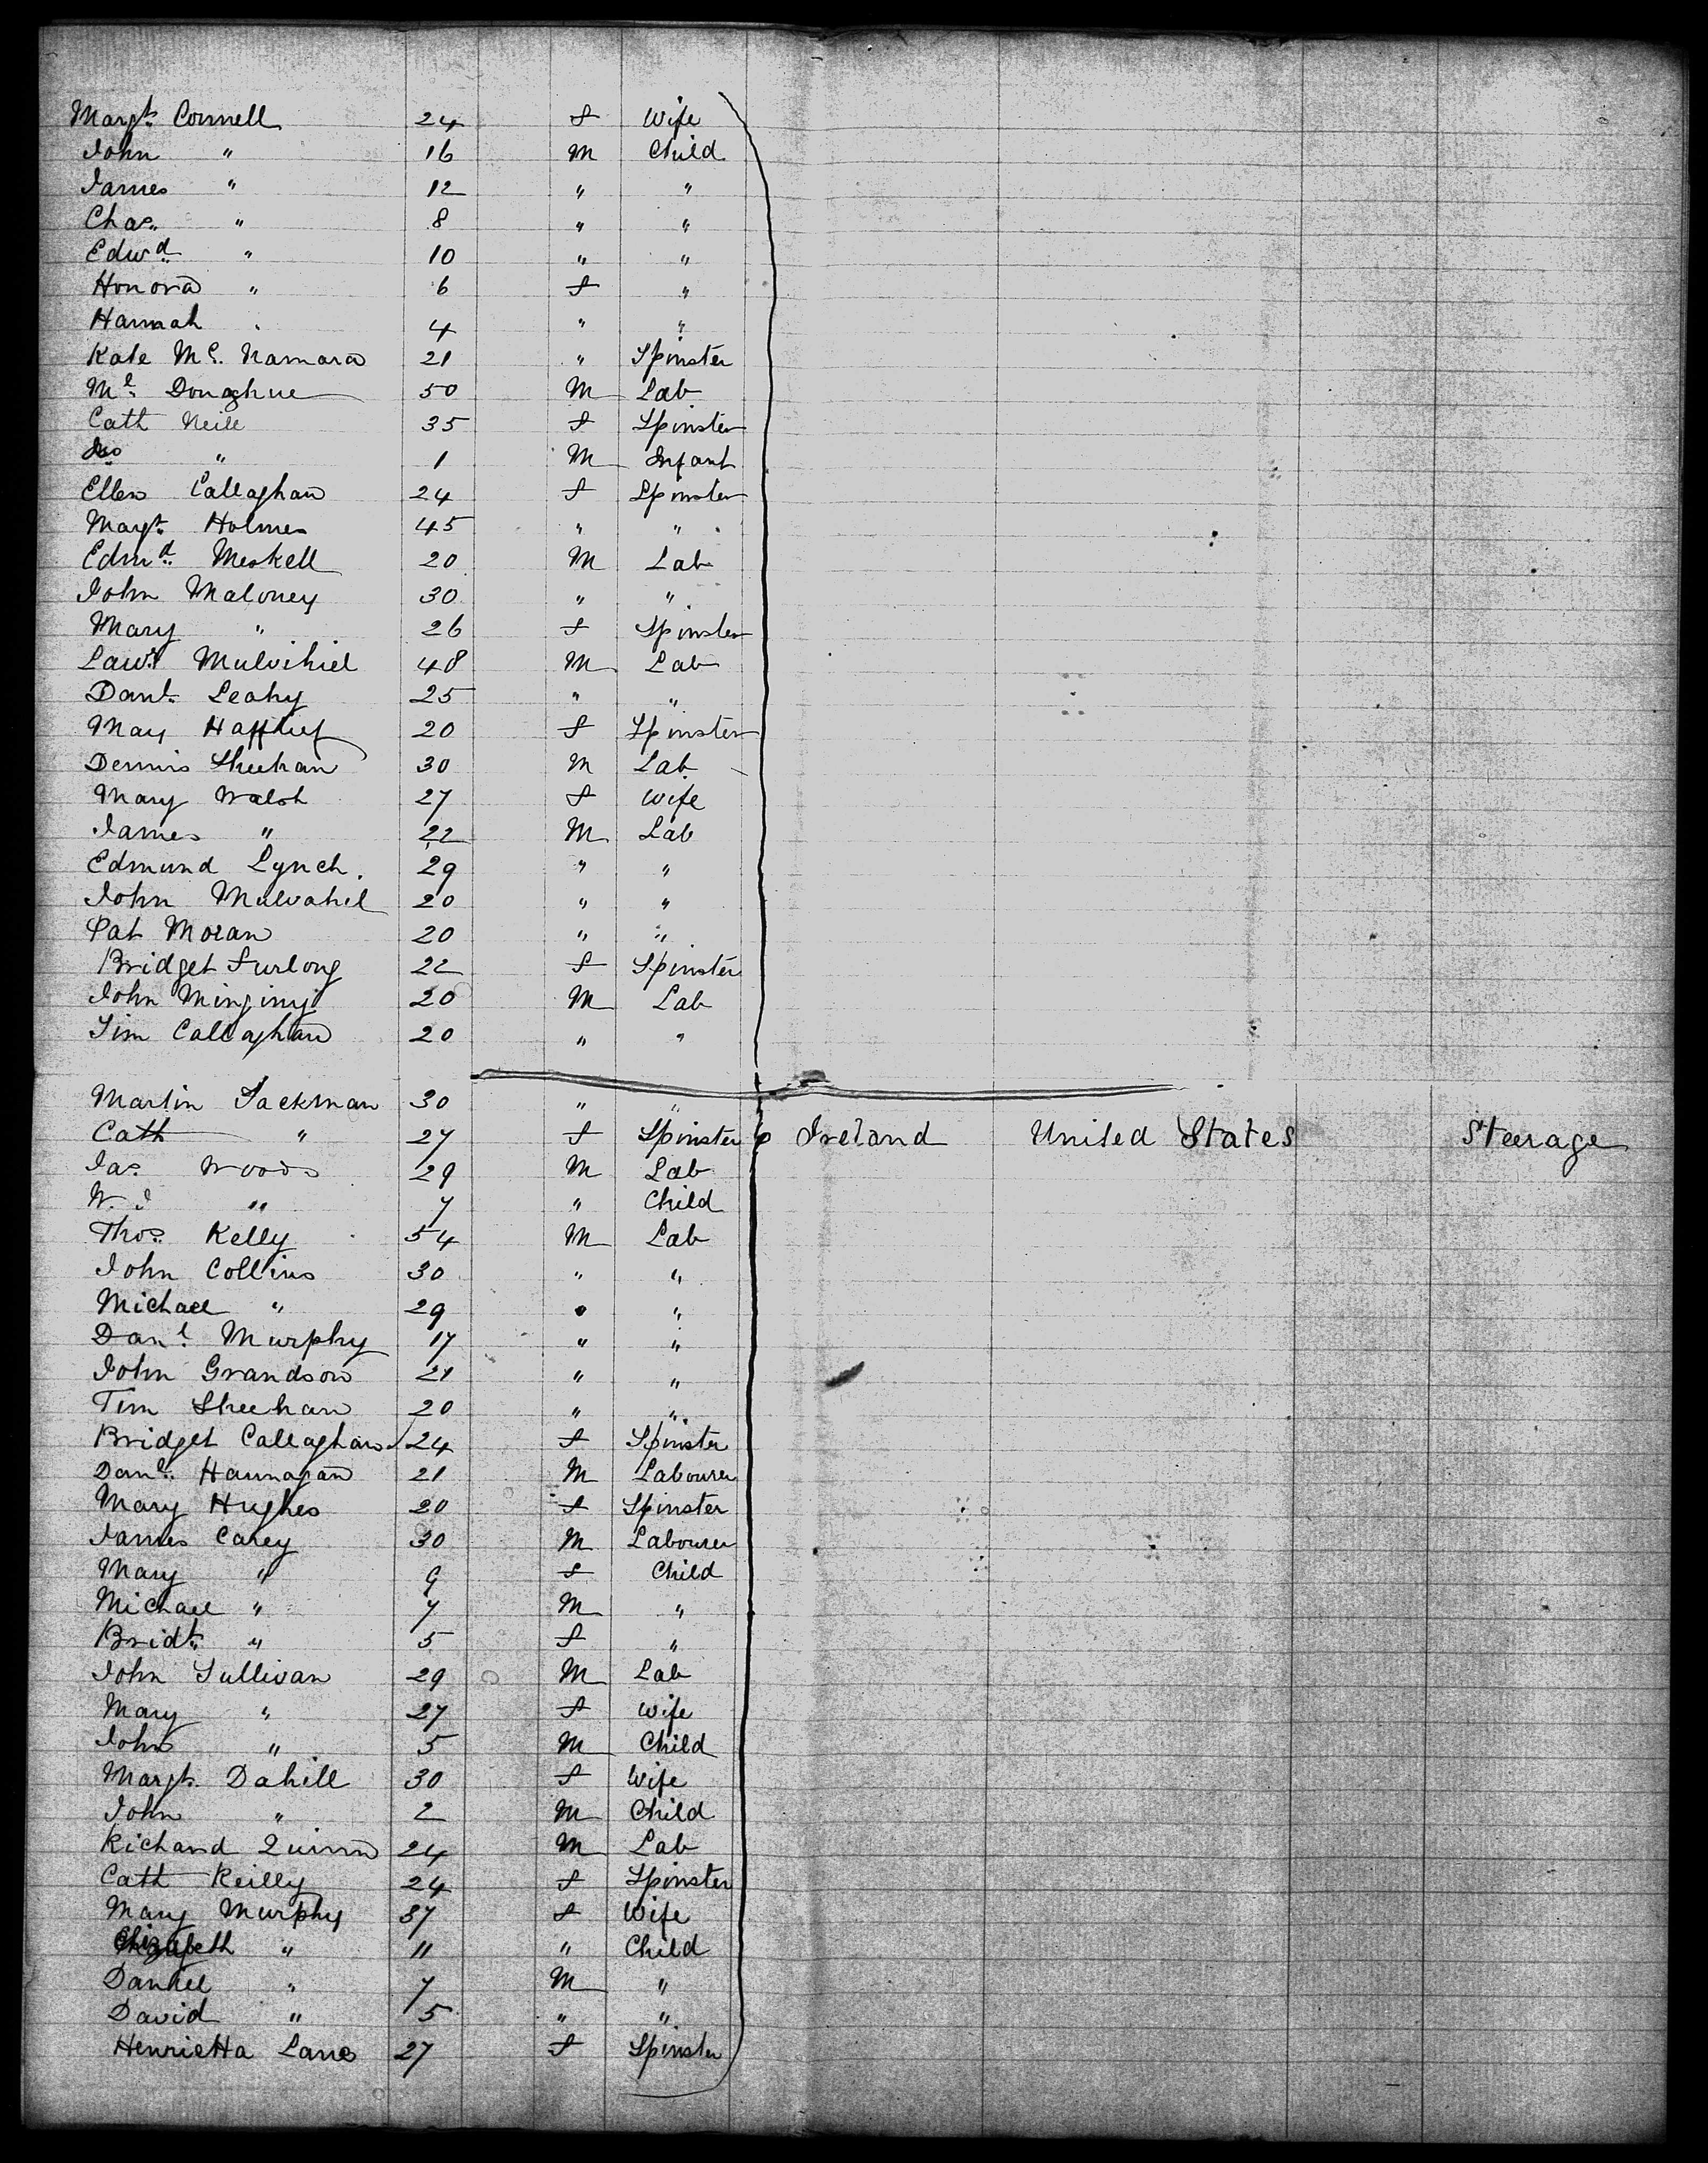 Margt. Connell 24 f Wife
John " 16 M Child
James " 12 " "
Chas. " 8 " "
Edwd. " 10 " "
Honora " 6 f "
Hannah " 4 " "
Kate Mc. Namara 21 " Spinster
Ml. Donoghue 50 M Lab
Cath Neill 35 f Spinster
" 1 M Infant
Ellen Callaghan 24 f Spinster
Margt. Holmes 45 " "
Edmd. Meskell 20 M Lab
John Maloney 30 " "
Mary " 26 f Spinster
Lawr. Mulvihiel 48 M Lab
Danl. Leahy 25 " "
Mary 20 f Spinster
Dennis Sheehan 30 M Lab
Mary Walsh 27 f Wife
James " 22 M Lab
Edmund Lynch. 29 " "
John Mulvahil 20 " "
Pat Moran 20 " "
Bridget Furlong 22 f Spinster
John 20 M Lab
Tim Callaghan 20 " "
Martin Jackman 30 " "
Cath " 27 f Spinster Ireland United States Steerage
Jas. Woods 29 M Lab
W. J " 7 " Child
Thos. Kelly 54 M Lab
John Collins 30 " "
Michael " 29 " "
Danl. Murphy 17 " "
John Grandson 21 " "
Tim Sheehan 20 " "
Bridget Callaghan 24 f Spinster
Danl. Hannagan 21 M Labourer
Mary Hughes 20 f Spinster
James Carey 30 M Labourer
Mary " 9 f Child
Michael " 7 M "
Bridt. " 5 f "
John Sullivan 29 M Lab
Mary " 27 f Wife
John " 5 M Child
Margt. Dahill 30 f Wife
John " 2 M Child
Richard Quinn 24 M Lab
Cath Reilly 24 f Spinster
Mary Murphy 37 f Wife
Elizabeth " 11 " Child
Daniel " 7 M "
David " 5 " "
Henrietta Lane 27 f Spinster